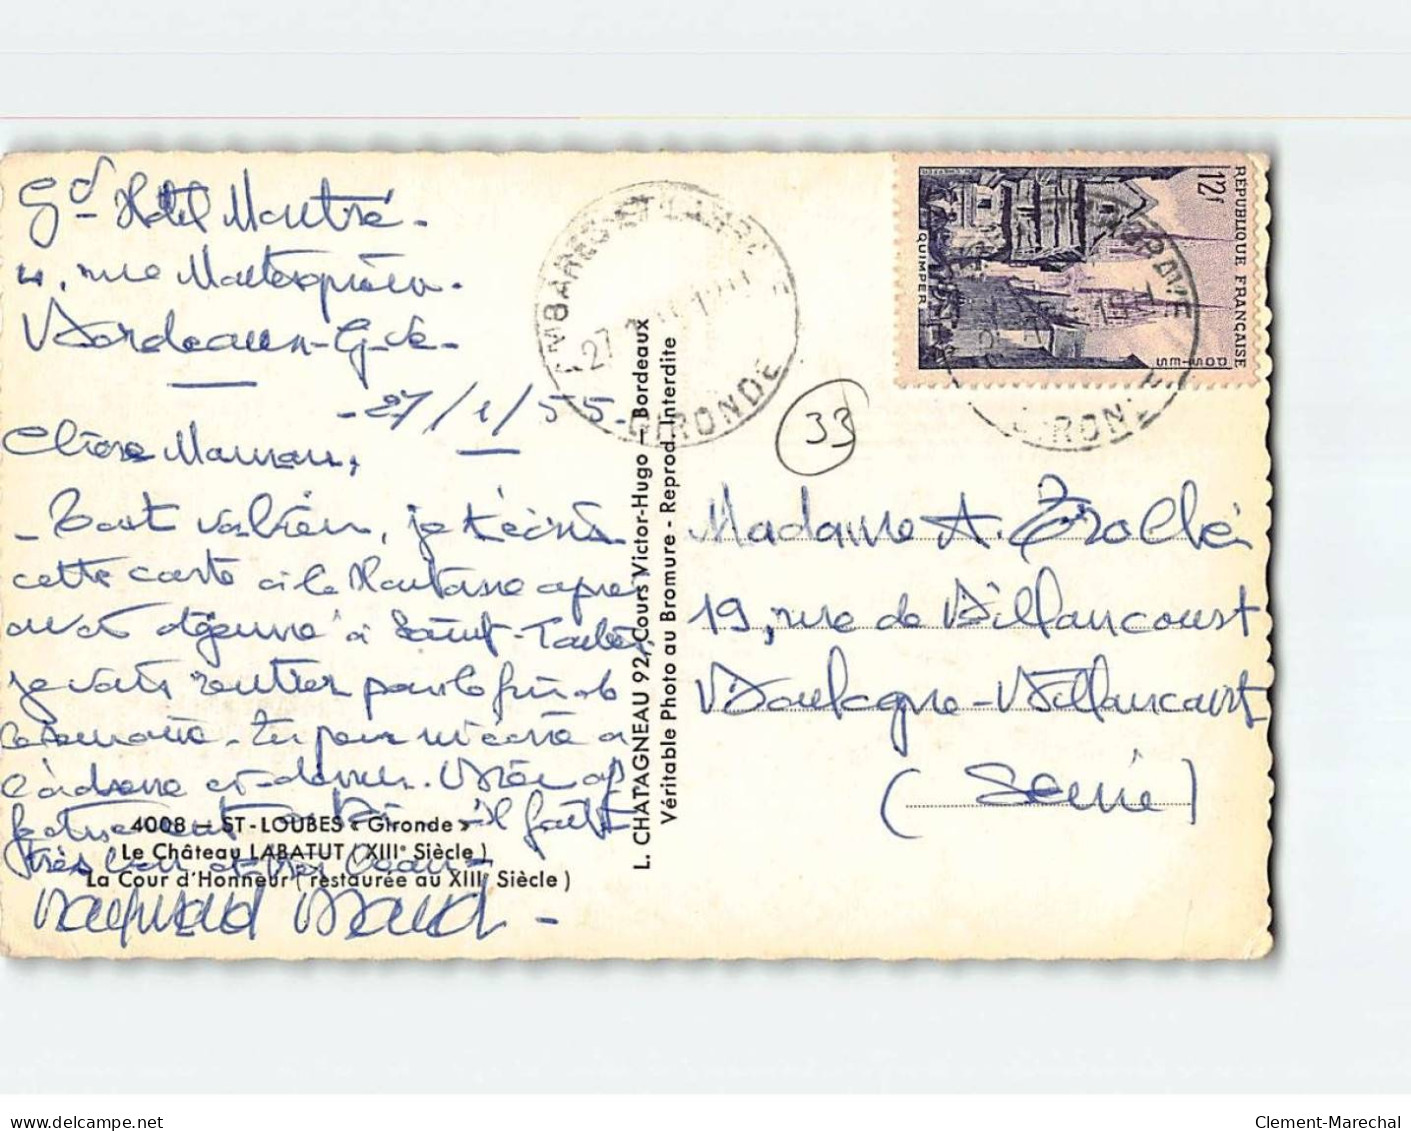 Gd Hotel Montré -
4, rue Montesquieu.
Bordeaux - Gde -
- 27/1/55 -
Chère Maman,
- Tout va bien, je t'écris
cette carte à la
avoir déjeuné à Saint-Loubès,
je vais rentrer pour la fin de la
- Tu peux m'écrire à
l'adresse ci-dessus.
il fait
très bon et très beau -
Raymond
4008 - ST-LOUBES « Gironde »
Le Château LABATUT ( XIII° Siècle )
La Cour d'Honneur ( restaurée au XIII° Siècle )
EMBARES-ST
27
GIRONDE
L. CHATAGNEAU 92, Cours Victor-Hugo - Bordeaux
Véritable Photo au Bromure - Reprod. Interdite
RÉPUBLIQUE FRANÇAISE
12f
POSTES
QUIMPER
33
Madame A. Trollé
19, rue de Billancourt
Boulogne-Billancourt
(Seine)
delcampe.net
Clement-Marechal